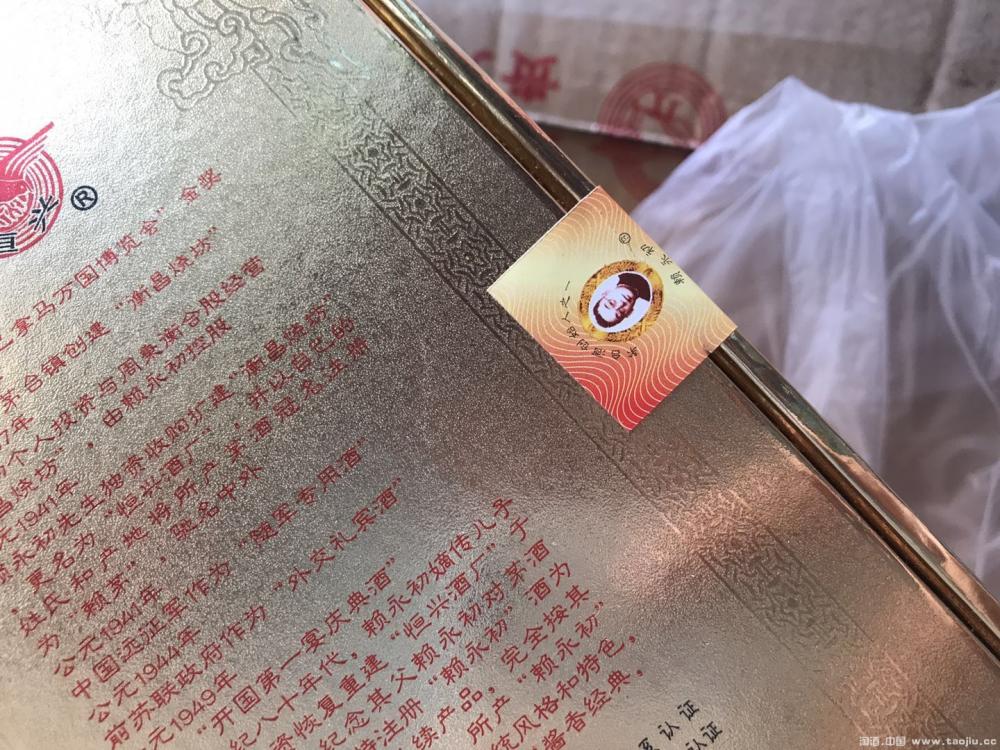 拿马万国博览会"金奖
茅台镇创建"衡昌烧坊"
7年
个人投资与周秉衡合股经营
昌烧坊",由赖永初控股
元1941年
赖永初先生独资收购扩建"衡昌烧坊"
更名为"恒兴酒厂",并以自己的
姓氏和产地将所产茅酒冠名
为"赖茅",驰名中外
公元1941年
中国远征军作为"随军专用酒"
公元1944年
前苏联政府作为"外交礼宾酒"
元1949年
"开国第一宴庆典酒"
纪八十年代,赖永初嫡传儿子
资恢复重建"恒兴酒厂"于
纪念其父赖永初对茅酒
特注册"赖永初"酒为
续产品,完全按其
所产"赖永初"
统风格和特色,
酱香经典,
系认证
认证
®
赖永初®
茅台酒创始人之一
淘酒.中国 www.taojiu.cc